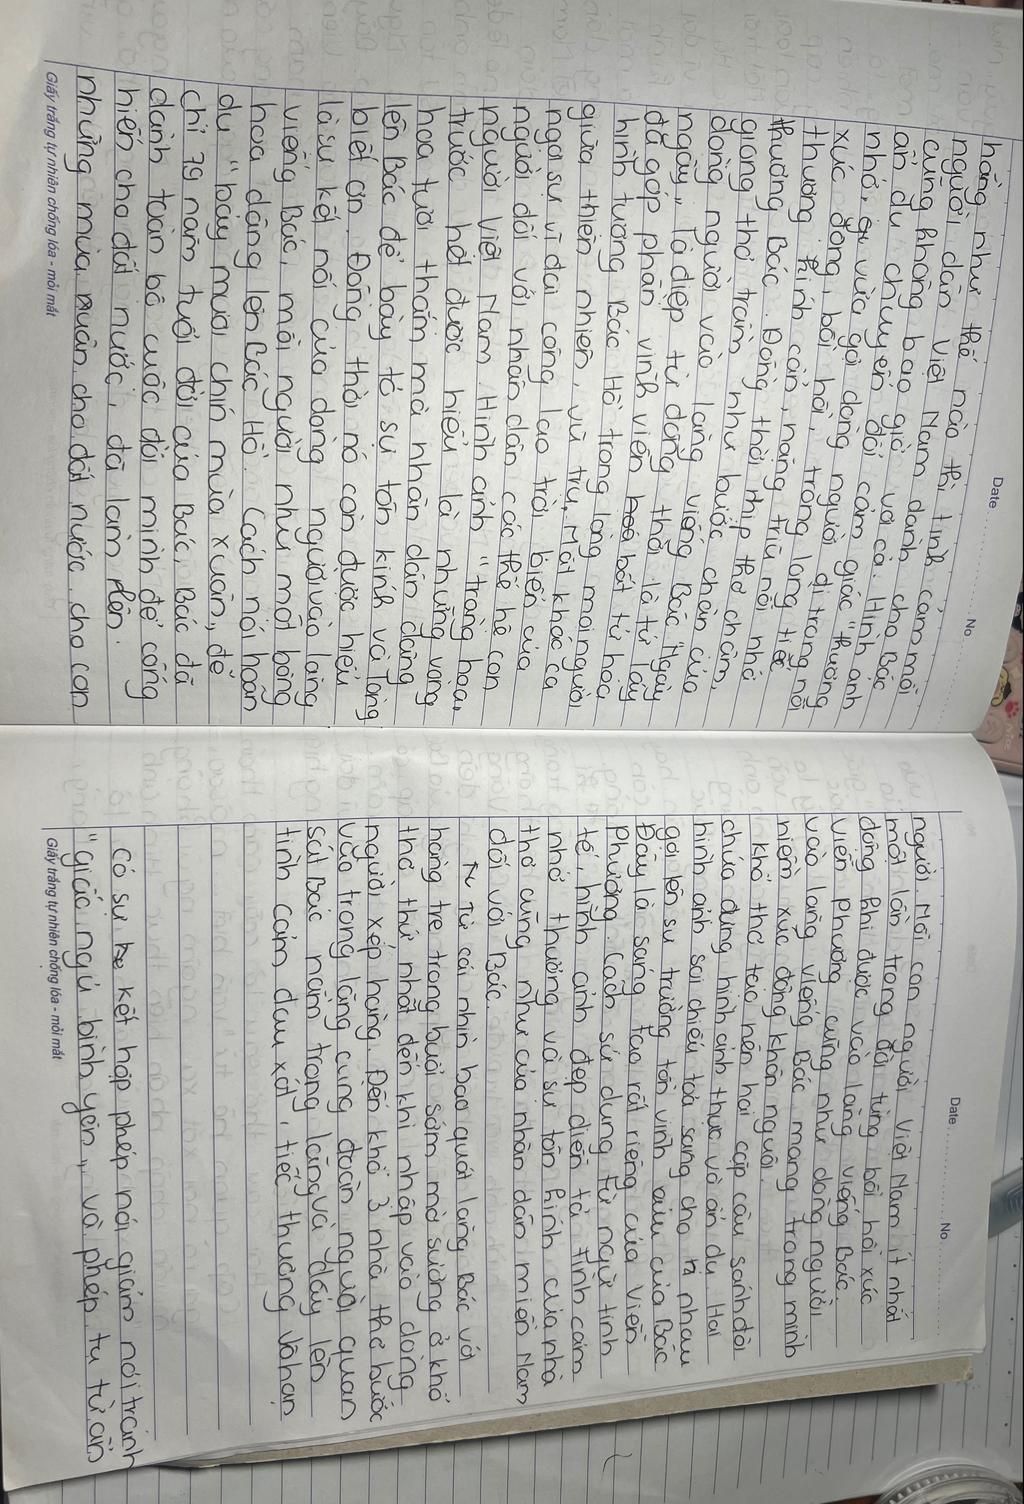 Date.......... No..........
hoàng như thế nào thì tình cảm mỗi
người dân Việt Nam dành cho Bác
cũng không bao giờ vơi cả. Hình ảnh
ẩn dụ chuyển đổi cảm giác "thương
nhớ" vừa gợi dòng người đi trong nỗi
xúc động, bồi hồi, trong lòng tiếc
thương, kính cản, nặng trĩu nỗi nhớ
thương Bác. Đồng thời nhịp thơ chậm,
giọng thơ trầm như bước chân của
dòng người vào lăng viếng Bác "Ngày
ngày" là điệp từ đồng thời là từ láy
đã góp phần vĩnh viễn hoá bất tử hóa,
hình tượng Bác Hồ trong lòng mọi người
giữa thiên nhiên, vũ trụ, Mặt khác ca
ngợi sự vĩ đại công lao trời biển của
người đối với nhân dân các thế hệ con
người Việt Nam. Hình ảnh "tràng hoa"
trước hết được hiểu là những vòng
hoa tươi thắm mà nhân dân dâng
lên Bác để bày tỏ sự tôn kính và lòng
biết ơn. Đồng thời nó còn được hiểu
là sự kết nối của dòng người vào lăng
viếng Bác, mỗi người như một bông
hoa dâng lên Bác Hồ. Cách nói hoán
dụ "bảy mươi chín mùa xuân" để
chỉ 79 năm tuổi đời của Bác, Bác đã
dành toàn bộ cuộc đời mình để cống
hiến cho đất nước, đã làm nên
những mùa xuân cho đất nước, cho con
Giấy trắng tự nhiên chống lóa - mỏi mắt
Date.......... No..........
người. Mỗi con người Việt Nam ít nhất
một lần trong đời từng bồi hồi xúc
động khi được vào lăng viếng Bác.
Viễn Phương cũng như dòng người
vào lăng viếng Bác mang trong mình
niềm xúc động khôn nguôi.
Khổ thơ tạo nên hai cặp câu sánh đôi
chứa đựng hình ảnh thực và ẩn dụ. Hai
hình ảnh soi chiếu toả sáng cho nhau
gợi lên sự trường tồn vinh cửu của Bác
Đây là sáng tạo rất riêng của Viễn
Phương. Cách sử dụng từ ngữ tinh
tế, hình ảnh đẹp diễn tả tình cảm
nhớ thương và sự tôn kính của nhà
thơ cũng như của nhân dân miền Nam
đối với Bác.
Từ cái nhìn bao quát lăng Bác với
hàng tre trong buổi sớm mờ sương ở khổ
thơ thứ nhất đến khi nhập vào dòng
người xếp hàng. Đến khổ 3 nhà thơ bước
vào trong lăng cùng đoàn người quan
sát Bác nằm trong lăng và dấy lên
tình cảm đau xót, tiếc thương vô hạn
Có sự kết hợp phép nói giảm nói tránh
"giấc ngủ bình yên" và phép tu từ ẩn
Giấy trắng tự nhiên chống lóa - mỏi mắt